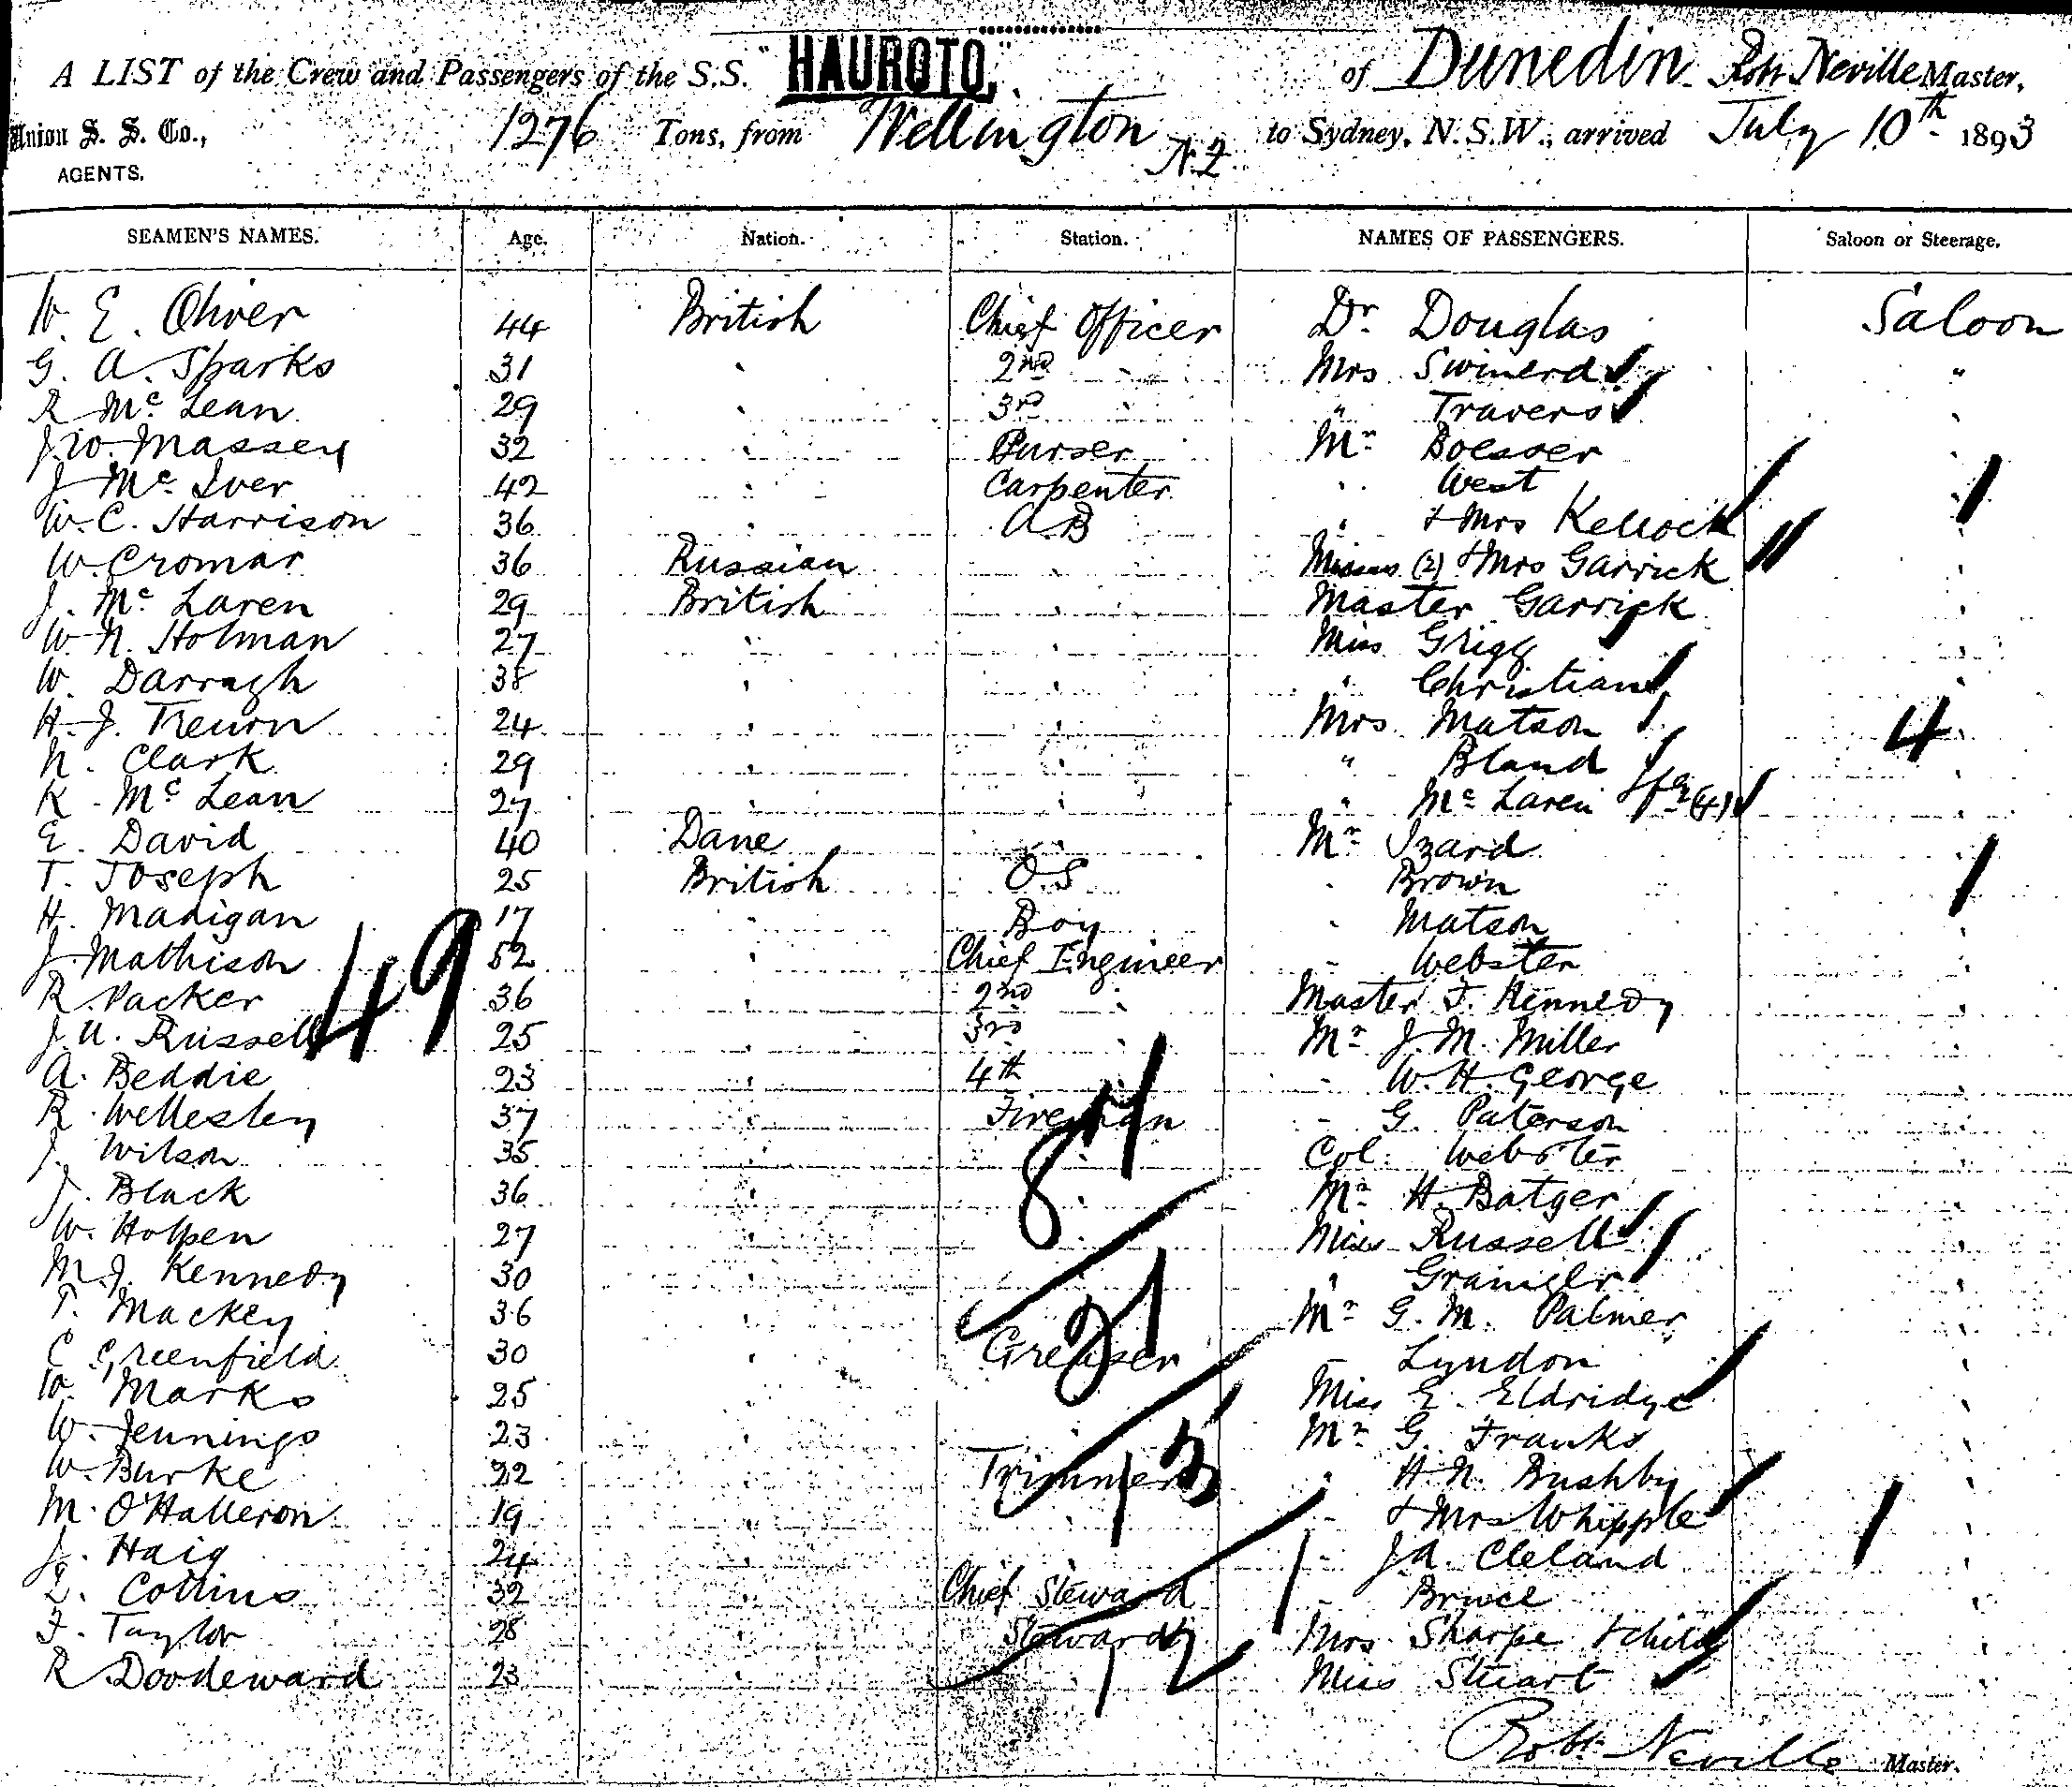 A LIST of the Crew and Passengers of the S.S. "HAUROTO," of Dunedin Robt Neville Master,
Union S. S. Co., 1276 Tons, from Wellington N.Z. to Sydney, N.S.W., arrived July 10th 1893
AGENTS.
SEAMEN'S NAMES. Age. Nation. Station. NAMES OF PASSENGERS. Saloon or Steerage.
W. E. Oliver 44 British Chief Officer Dr. Douglas Saloon
G. A. Sparks 31 " 2nd " Mrs Swinerd "
R McLean 29 " 3rd " " Travers "
J. W. Massey 32 " Purser Mr "
J McIver 42 " Carpenter " West "
W. C. Harrison 36 " A B " & Mrs Kellock "
W. Cromar 36 Russian " Misses (2) & Mrs Garrick "
J. McLaren 29 British " Master Garrick "
W. N. Holman 27 " " Miss Grigg "
W. Darragh 38 " " " Christian "
H. J. 24 " " Mrs. Matson " 4
N. Clark 29 " " " Bland "
K. McLean 27 " " " McLaren (4) "
E. David 40 Dane " Mr Izard "
T. Joseph 25 British O.S " Brown "
H. Madigan 17 " Boy " Matson "
J. Mathison 52 " Chief Engineer " Webster "
49
R. Packer 36 " 2nd " Master F. Kennedy "
J. U. Russell 25 " 3rd Mr J. M. Miller "
A. Beddie 23 " 4th " W. H. George "
R Wellesley 37 " Fireman " G. Paterson "
J. Wilson 35 " " Col. Webster "
J. Black 36 " " Mr H. Batger "
W. Holpen 27 " Miss Russell "
M. J. Kennedy 30 " " Grainger "
T. Mackey 36 " Mr G. M. Palmer "
C Greenfield 30 " Greaser " Lyndon "
W. Marks 25 " Miss E. Eldridge "
W. Jennings 23 " Mr G. Franks "
W. Burke 22 " Trimmer " H. N. Bushby "
M. O'Halleron 19 " " " & Mrs Whipple "
J. Haig 24 " " J. A. Cleland "
Collins 32 Chief Steward " Bruce "
F. Taylor 28 " Steward Mrs Sharpe & child "
R Doodeward 23 " Miss Stuart "
Robt Neville Master.